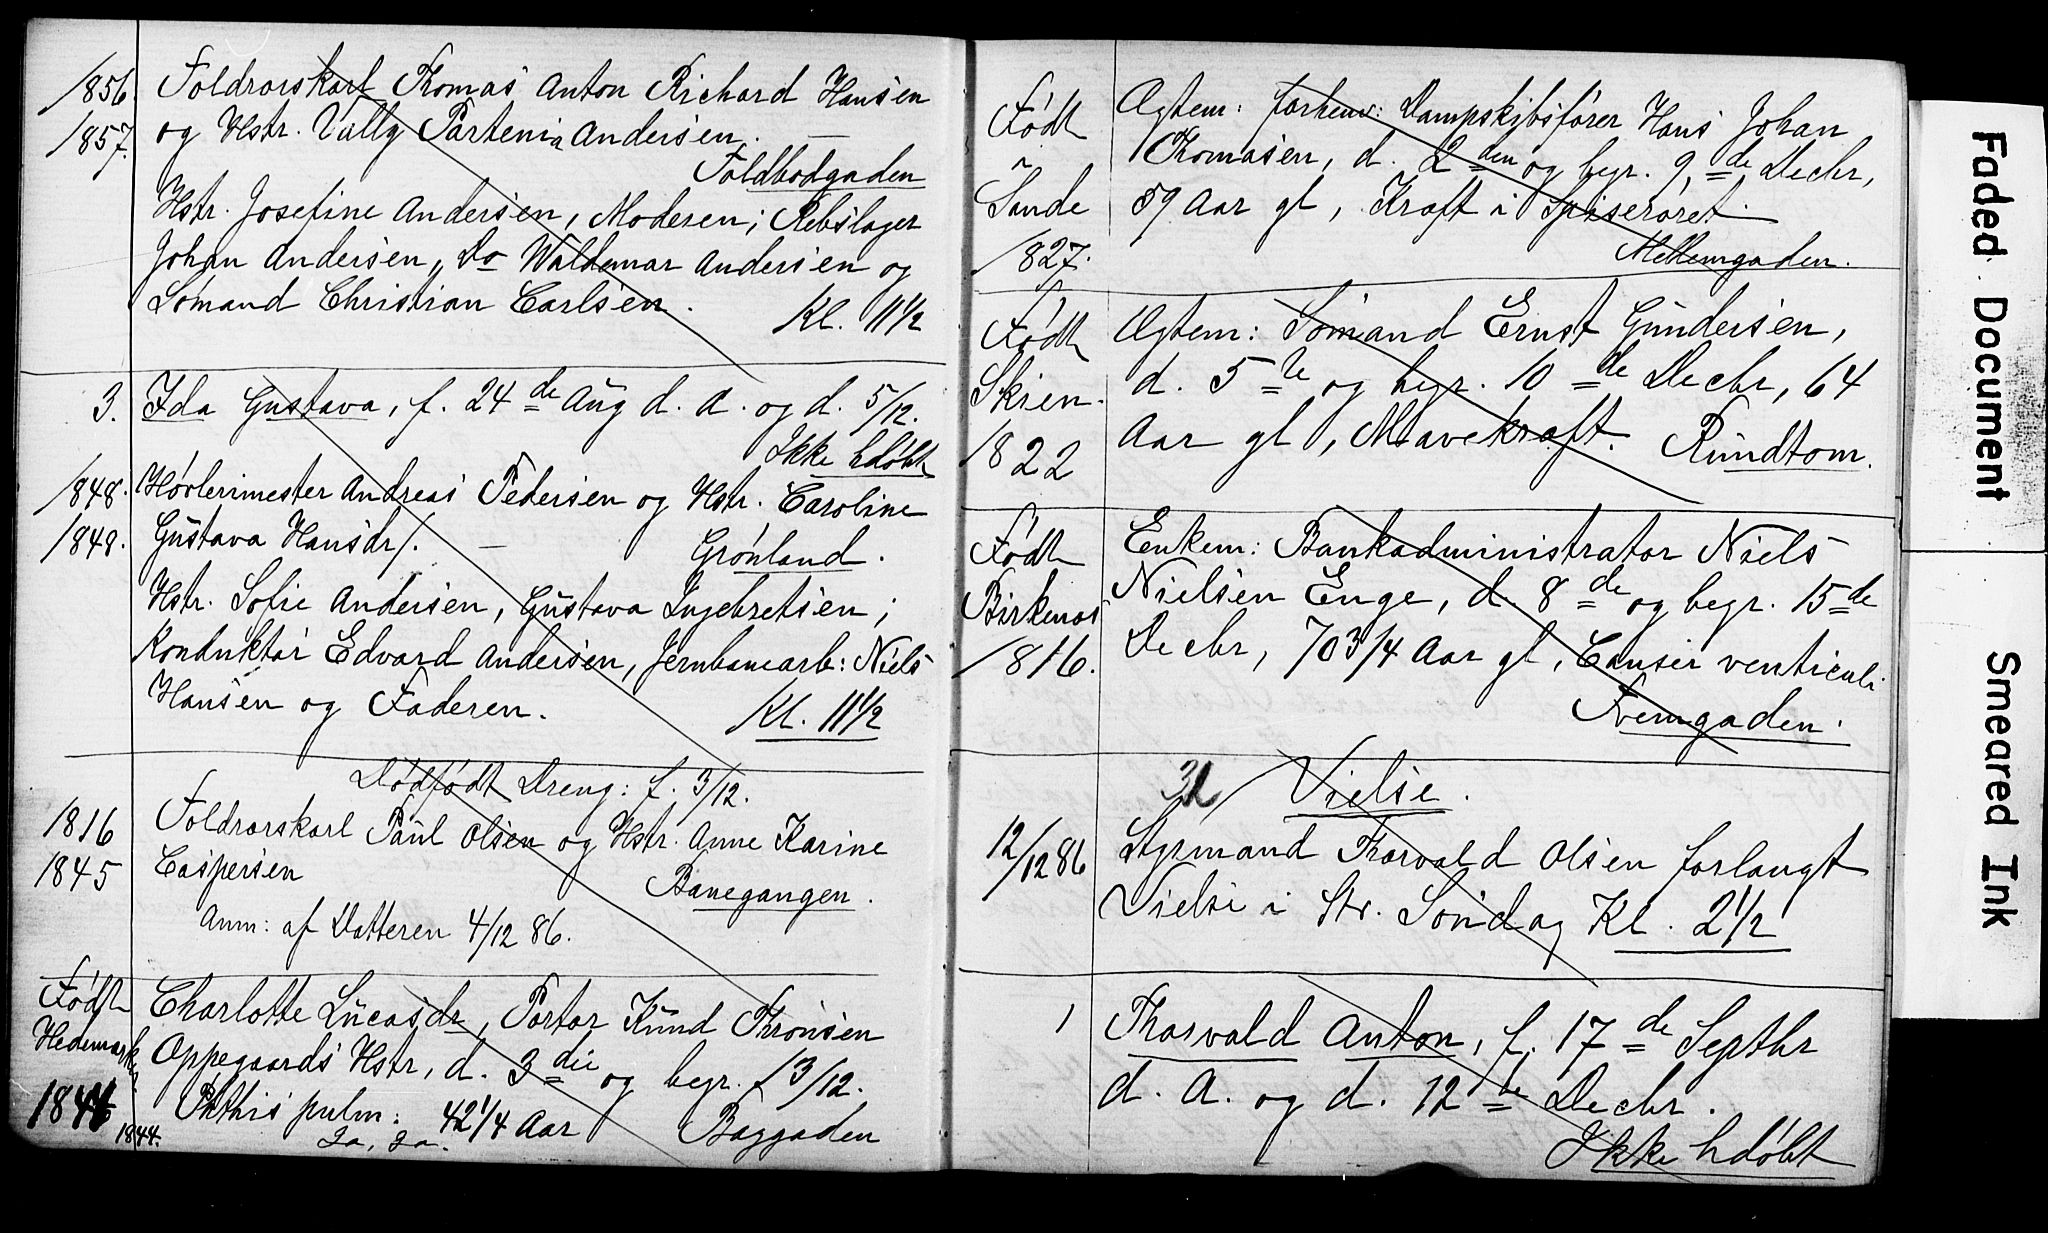 1856. Toldrorskarl Thomas Anton Richard Hansen
1857. og Hstr. Vally Partenia Andersen. —
Toldbodgaden
Hstr. Josefine Andersen, Moderen; Rebslager
Johan Andersen, Do Waldemar Andersen og
Sömand Christian Carlsen. Kl. 11 1/2
3. Ida Gustava, f. 24de Aug d. A. og d. 5/12.
Ikke hdöbt
1848. Hövlerimester Andreas Pedersen og Hstr. Caroline
1849. Gustava Hansdr/. — Grönland.
Hstr. Sofie Andersen, Gustava Ingebretsen;
Konduktör Edvard Andersen, Jernbanearb: Niels
Hansen og Faderen. Kl. 11 1/2
Dödfödt Dreng: f. 3/12.
1816 Toldrorskarl Paul Olsen og Hstr. Anne Karine
1845 Caspersen Banegangen.
Anm: af Datteren 4/12 86.
Födt Charlotte Lucasdr, Portör Knud Thronsen
Hedemarken Oppegaards Hstr, d. 3die og begr. 13/12.
1844 Phthis pulm: 42 1/4 Aar Baggaden
1844. Ja, ja.
Födt Ægtem: forhenv: Dampskibsförer Hans Johan
i Thomasen, d. 2den og begr. 9de Decbr,
Sande 59 Aar gl, Kræft i Spiseröret.
1827. Mellemgaden.
Födt Ægtem: Sömand Ernst Gundersen,
Skien. d. 5te og begr. 10de Decbr, 64
1822 Aar gl, Mavekræft. Rundtom.
Födt Enkem: Bankadministrator Niels
Birkenæs Nielsen Enge, d. 8de og begr. 15de
1816. Decbr, 70 3/4 Aar gl, Canser ventriculi
Fremgaden.
Vielse.
12/12 86 Styrmand Thorvald Olsen forlangt
Vielse i Str. Söndag Kl. 2 1/2
1 Thorvald Anton, f. 17de Septbr
d. A. og d. 12te Decbr.
Ikke hdöbt
Faded Document
Smeared Ink